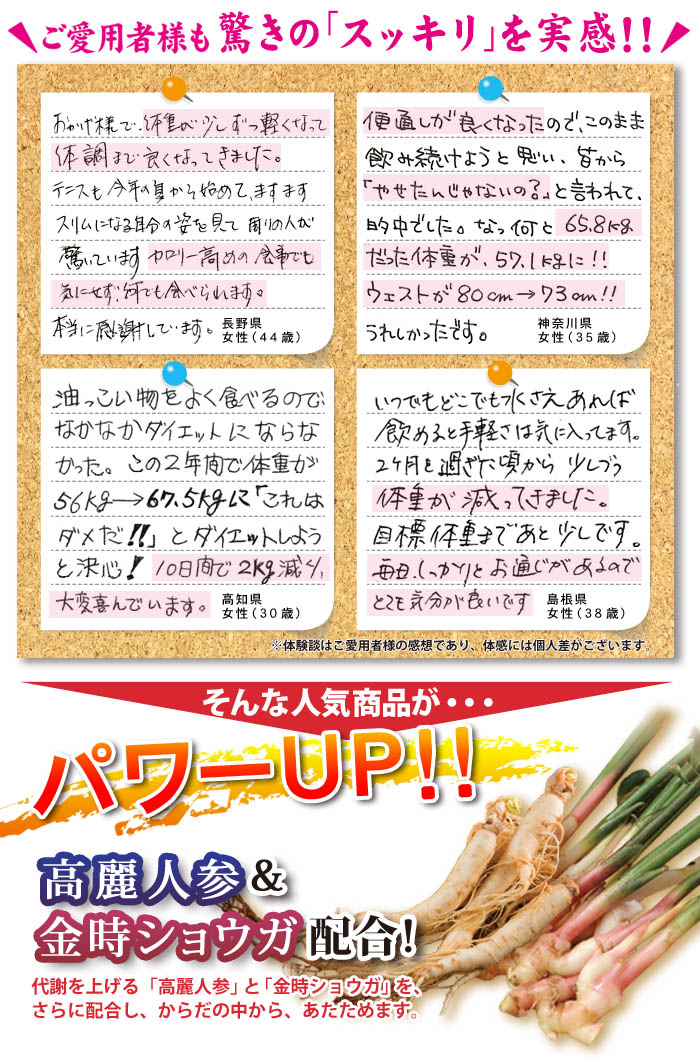 ご愛用者様も驚きの「スッキリ」を実感!!
おかげ様で、体重が少しずつ軽くなって
体調まで良くなってきました。
テニスも今年の夏から始めて、ますます
スリムになる自分の姿を見て 周りの人が
驚いています カロリー高めの食事でも
気にせず、何でも食べられます。
本当に感謝しています。
長野県
女性(44歳)
便通しが良くなったので、このまま
飲み続けようと思い、皆から
「やせたんじゃないの?」と言われて、
的中でした。なっ何と 65.8kg
だった体重が、57.1kgに!!
ウェストが80cm→73cm!!
うれしかったです。
神奈川県
女性(35歳)
油っこい物をよく食べるので
なかなかダイエットにならな
かった。この2年間で体重が
56kg→67.5kgに「これは
ダメだ!!」とダイエットしよう
と決心! 10日間で2kg減り、
大変喜んでいます。
高知県
女性(30歳)
いつでもどこでも水さえあれば
飲めると手軽さは気に入ってます。
2ヶ月を過ぎた頃から 少しづつ
体重が減ってきました。
目標体重まであと少しです。
毎日、しっかりとお通じがあるので
とても気分が良いです
島根県
女性(38歳)
※体験談はご愛用者様の感想であり、体感には個人差がございます。
そんな人気商品が・・・
パワーUP!!
高麗人参&
金時ショウガ配合!
代謝を上げる「高麗人参」と「金時ショウガ」を、
さらに配合し、からだの中から、あたためます。